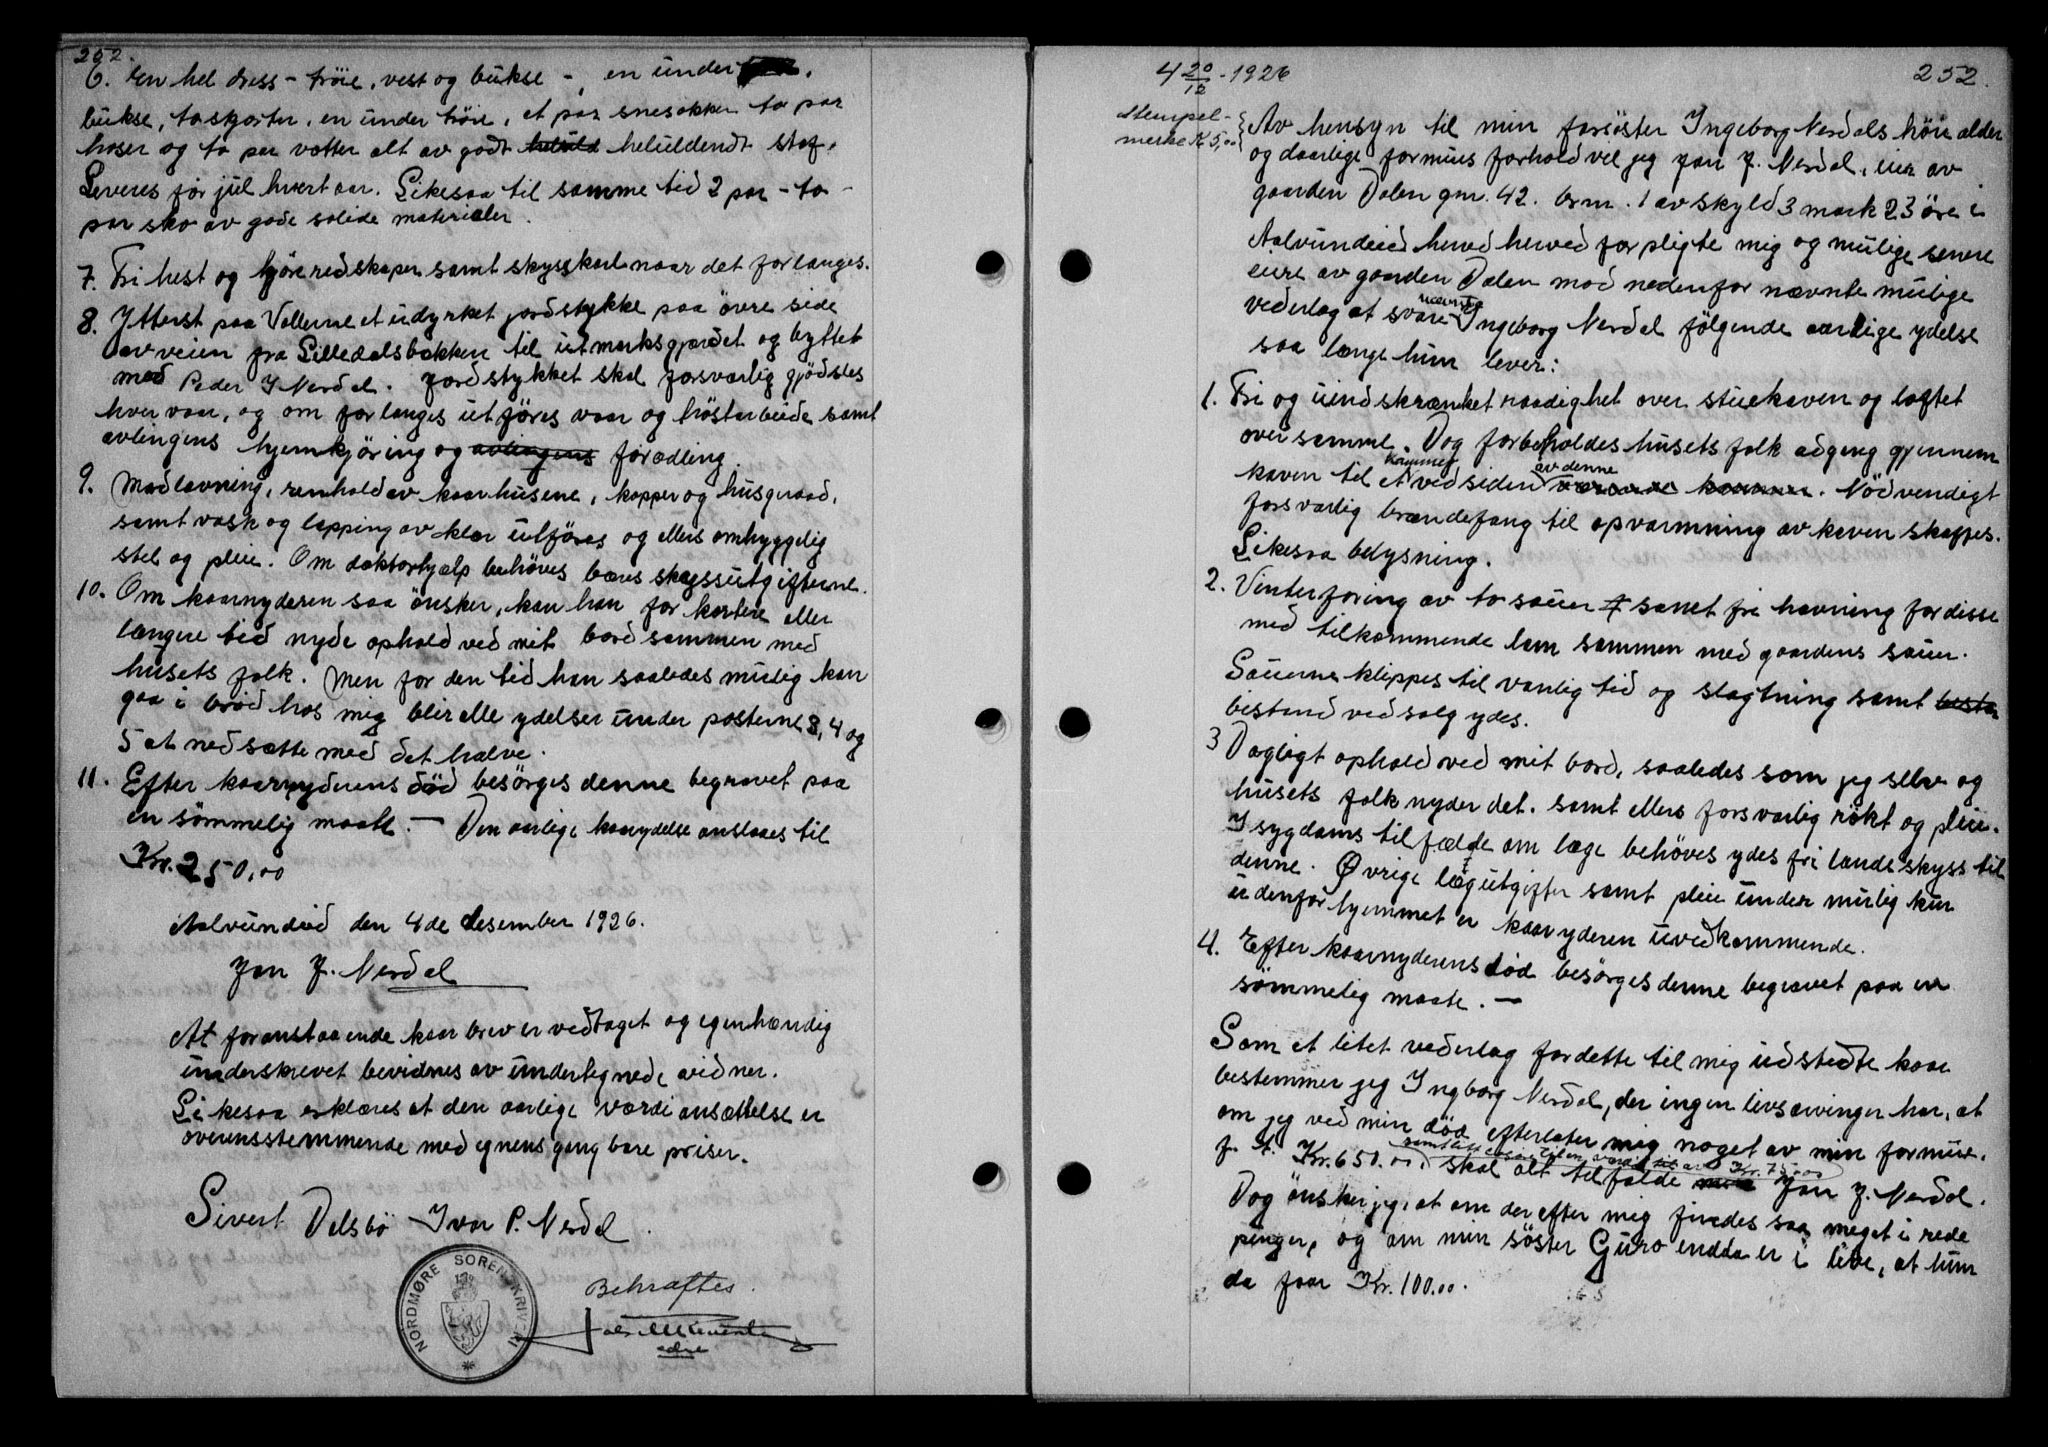 252.
6. En hel dress - trøie, vest og bukse -, en under
bukse, to skjorter, en under trøie, et par snesokker to par
hoser og to par votter alt av godt heluldendt stof.
Leveres før jul hvert aar. Likesaa til samme tid 2 par - to -
par sko av gode solide materialer.
7. Fri hest og kjøreredskaper samt skysskarl naar det forlanges.
8. Ytterst paa Vollerne et udyrket jordstykke paa övre side
av veien fra Lilledalsbækken til utmarksgjærdet og byttet
med Peder I Nerdal. Jordstykket skal forsvarlig gjödsles
hver vaar, og om forlanges utföres vaar og höstarbeide samt
avlingens hjemkjöring og avlingens forædling.
9. Madlavning, renhold av kaarhusene, kopper og husgeraad,
samt vask og lapping av klær utføres og ellers omhyggelig
stel og pleie. Om doktorhjælp behöves bæres skyssutgifterne.
10. Om kaarnyderen saa önsker, kan han for kortere eller
længere tid nyde ophold ved mit bord sammen med
husets folk. Men for den tid han saaledes mulig kan
gaa i brød hos mig blir alle ydelser under posterne 3, 4 og
5 at nedsætte med det halve.
11. Efter kaarnyderens död besörges denne begravet paa
en sömmelig maate. - Den aarlige kaarydelse anslaaes til
Kr. 250,00
Aalvundeid den 4de desember 1926.
Jon J. Nerdal
At foranstaaende kaarbrev er vedtaget og egenhændig
underskrevet bevidnes av undertegnede vidner.
Likesaa erklæres at den aarlige værdiansættelse er
overensstemmende med egnens gangbare priser.
Sivert Dalsbö Ivar P. Nerdal.
NORDMØRE SORENSKRIVERI
Bekræftes.
4 20/12 - 1926
252.
Stempel-
merke K 5,00
Av hensyn til min farsöster Ingeborg Nerdals höie alder
og daarlige formues forhold vil jeg Jon J. Nerdal, eier av
gaarden Dalen gnr. 42. brnr. 1 av skyld 3 mark 23 öre i
Aalvundeid herved herved forpligte mig og mulige senere
eiere av gaarden Dalen mod nedenfor nævnte mulige
vederlag at svare nævnte Ingeborg Nerdal fölgende aarlige ydelse
saa længe hun lever:
1. Fri og uindskrænket raadighet over stuekaven og loftet
over samme. Dog forbeholdes husets folk adgang gjennem
kaven til et kammer ved siden av denne. Nödvendigt
forsvarlig brændefang til opvarmning av kaven skaffes.
Likesaa belysning.
2. Vinterforing av to sauer samt fri havning for disse
med tilkommende lam sammen med gaardens sauer.
Sauerne klippes til vanlig tid og slagtning samt
bistand ved salg ydes.
3 Dagligt ophold ved mit bord, saaledes som jeg selv og
husets folk nyder det. samt ellers forsvarlig rökt og pleie.
I sygdoms tilfælde om læge behöves ydes fri landskyss til
denne. Övrige lægeutgifter samt pleie under mulig kur
udenfor hjemmet er kaaryderen uvedkommende.
4. Efter kaarnyderens död besörges denne begravet paa en
sömmelig maate. -
Som et litet vederlag for dette til mig udstedte kaar
bestemmer jeg Ingborg Nerdal, der ingen livsarvinger har, at
om jeg ved min död efterlater mig noget av min formue,
f. t. Kr. 650.00, samt lösöre til en værdi til av Kr. 75.00 skal alt tilfalde Jon J. Nerdal.
Dog önsker jeg, at om der efter mig findes saa meget i rede
penger, og om min söster Guro endda er i live, at hun
da faar Kr. 100.00.